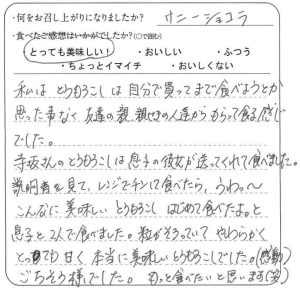 ・何をお召し上がりになりましたか？ サニーショコラ
・食べたご感想はいかがでしたか？（○で囲む）
とっても美味しい！ ・おいしい ・ふつう
・ちょっとイマイチ ・おいしくない
私は とうもろこしは 自分で買ってまで食べようとか
思った事なく 友達の親、親せきの人達から もらって食る感じ
でした。
寺坂さんのとうもろこしは息子の彼女が送ってくれて食べました。
説明書を見て、レンジでチンして食べたら、うわぁ〜
こんなに 美味しい とうもろこし はじめて食べたよ。と
息子と2人で食べました。粒がそろっていて やわらかく
とっても 甘く 本当に美味しい とうもろこしでした。(感動)
ごちそう様でした。 もっと食べたいと思います(笑)